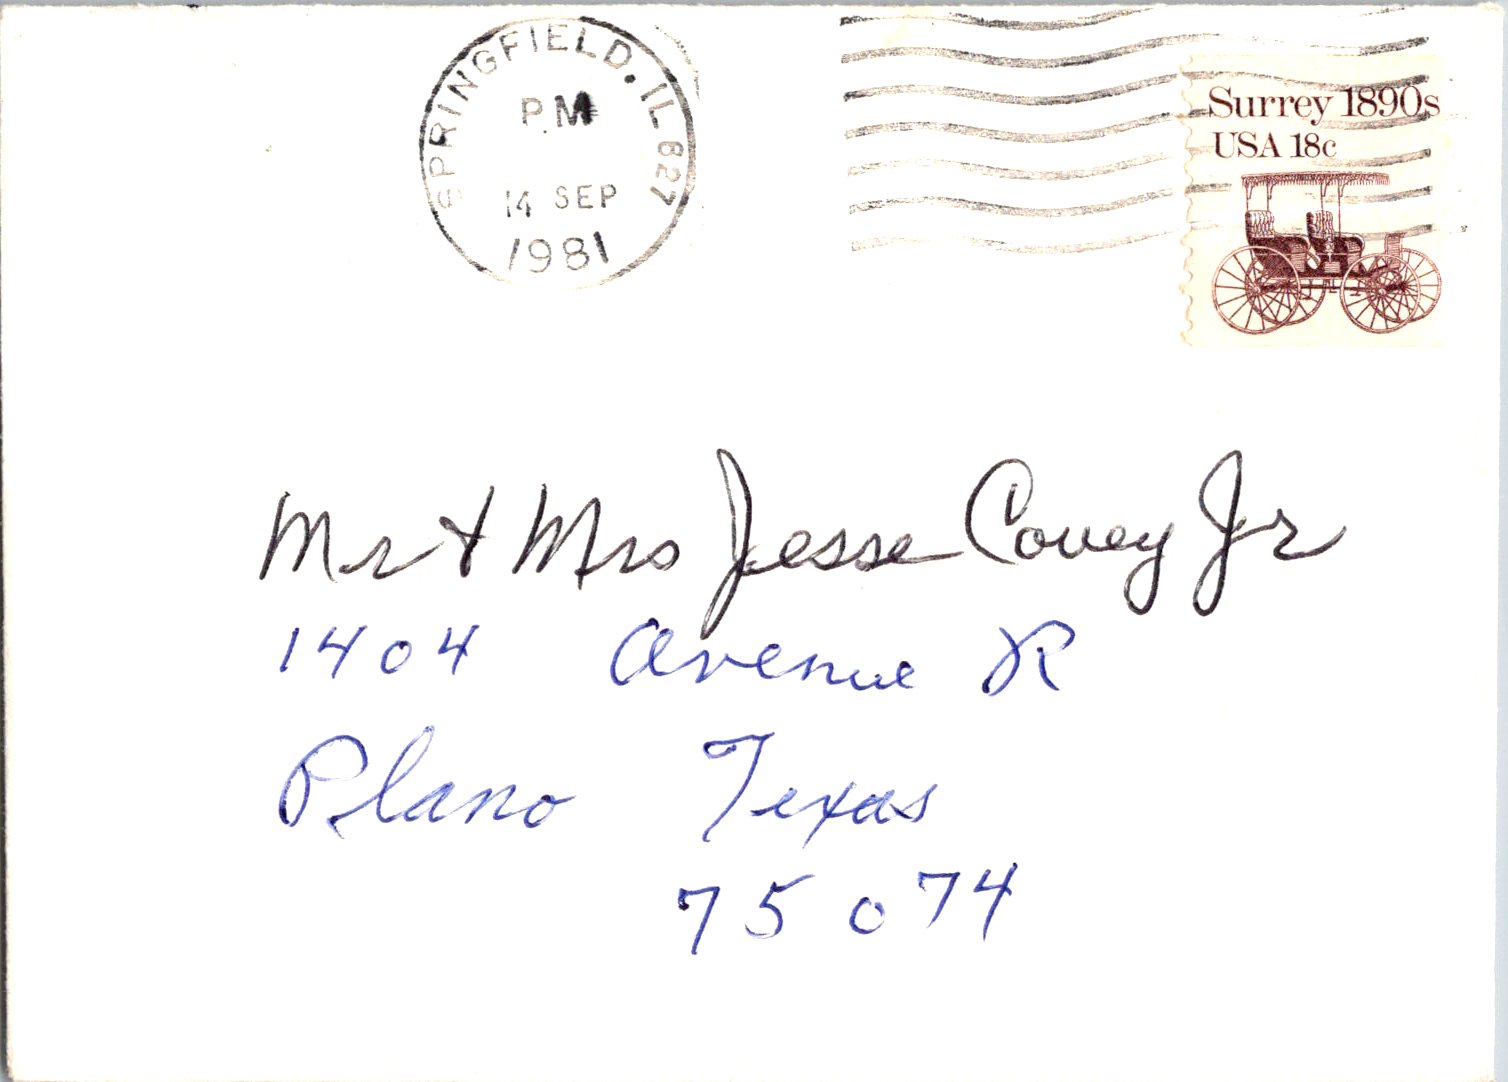 SPRINGFIELD, IL 627
PM
14 SEP
1981
Surrey 1890s
USA 18c
Mr & Mrs Jesse Covey Jr
1404 Avenue R
Plano Texas
75074